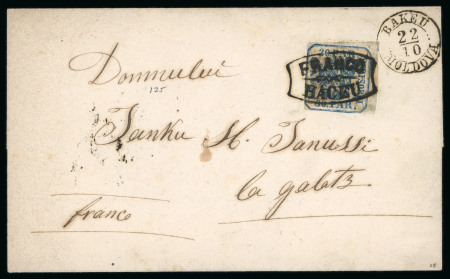 BAKEU
22
10
MOLDOVA
FRANCO
BACEU
Domnului
125
Janku H. Janussi
la galatz
franco